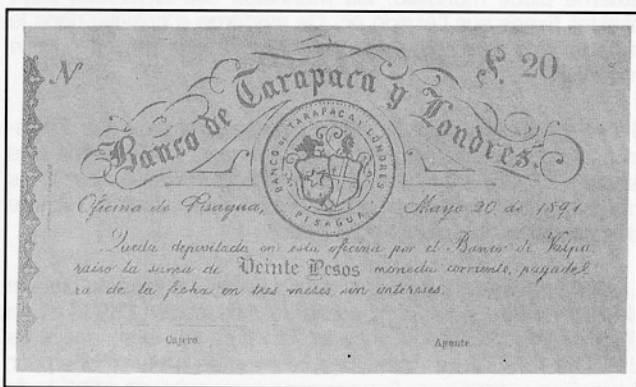 N
$ 20
Banco de Tarapaca y Londres.
BANCO DE TARAPACA Y LONDRES
PISAGUA
Oficina de Pisagua, Mayo 20 de 1891
Queda depositada en esta oficina por el Banco de Valpa
raiso la suma de Veinte Pesos moneda corriente, pagadel
ra de la fecha en tres meses sin intereses.
Cajero. Agente